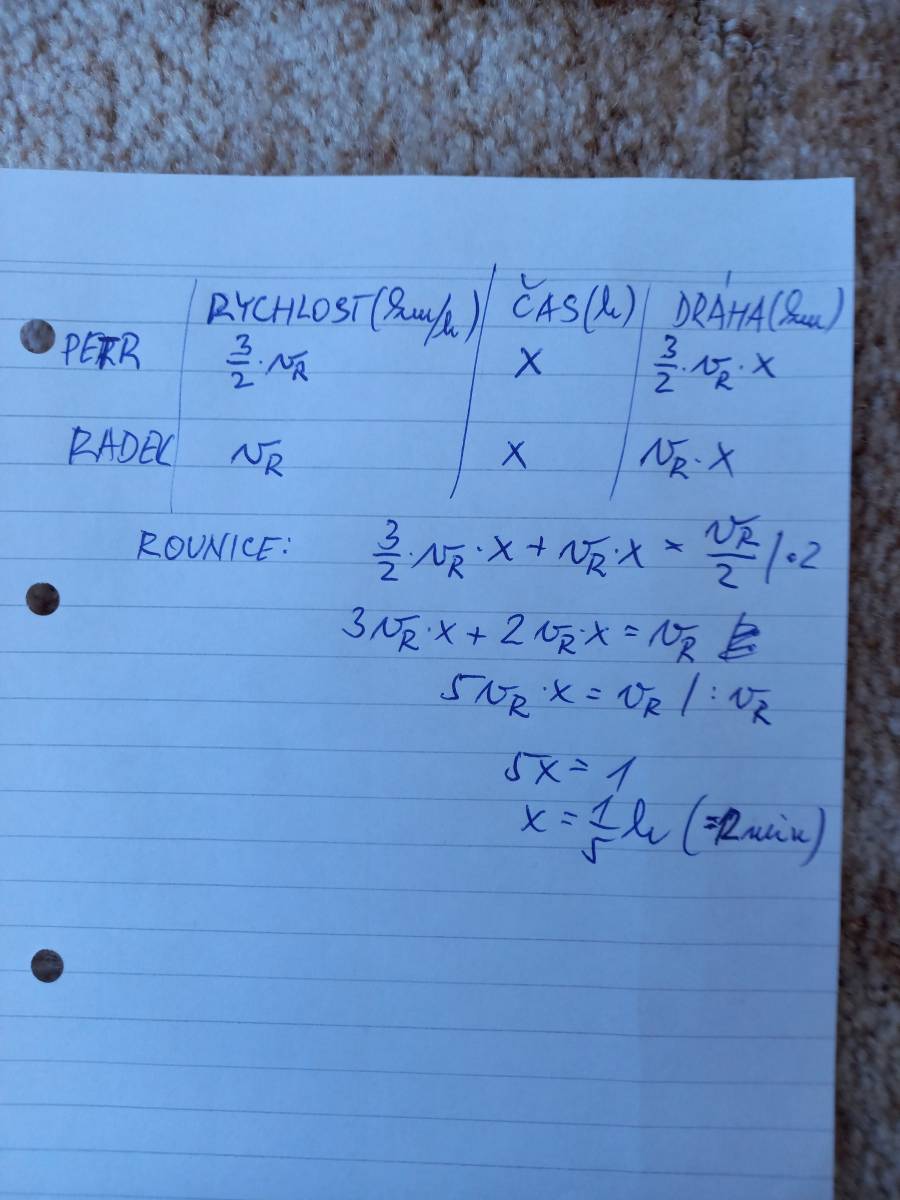 RYCHLOST (km/h) ČAS (h) DRÁHA (km)
PETR 3/2 · vR X 3/2 · vR · X
RADEK vR X vR · X
ROVNICE: 3/2 · vR · X + vR · X = vR/2 / · 2
3vR · X + 2vR · X = vR
5vR · X = vR / : vR
5X = 1
X = 1/5 h (=12 min)